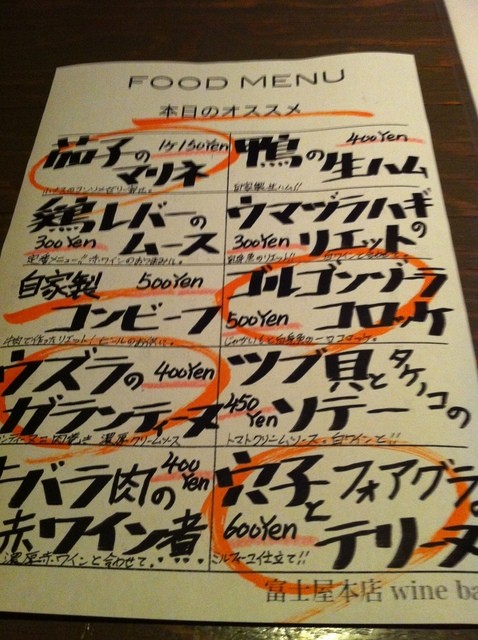 FOOD MENU
本日のオススメ
茄子の 1ケ150Yen
マリネ
鴨の 400Yen
生ハム
自家製生ハム!!
鶏レバーの
300Yen ムース
ウマヅラハギの
300Yen リエット
自家製 500Yen
コンビーフ
ゴルゴンゾーラ
500Yen コロッケ
ウズラの 400Yen
ガランティーヌ
ツブ貝とタケノコの
450Yen ソテー
トマトクリームソース。白ワインと!!
牛バラ肉の 400Yen
赤ワイン煮
濃厚赤ワインと合わせて。
穴子とフォアグラの
600Yen テリーヌ
ミルフィーユ仕立て!!
富士屋本店 wine ba